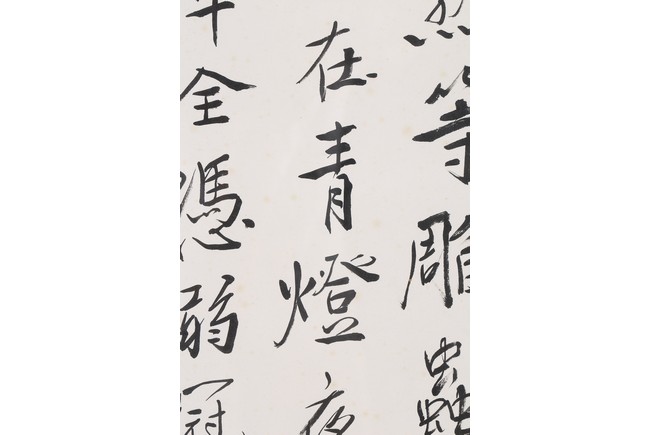 等雕蟲
在青燈夜
全憑弱冠